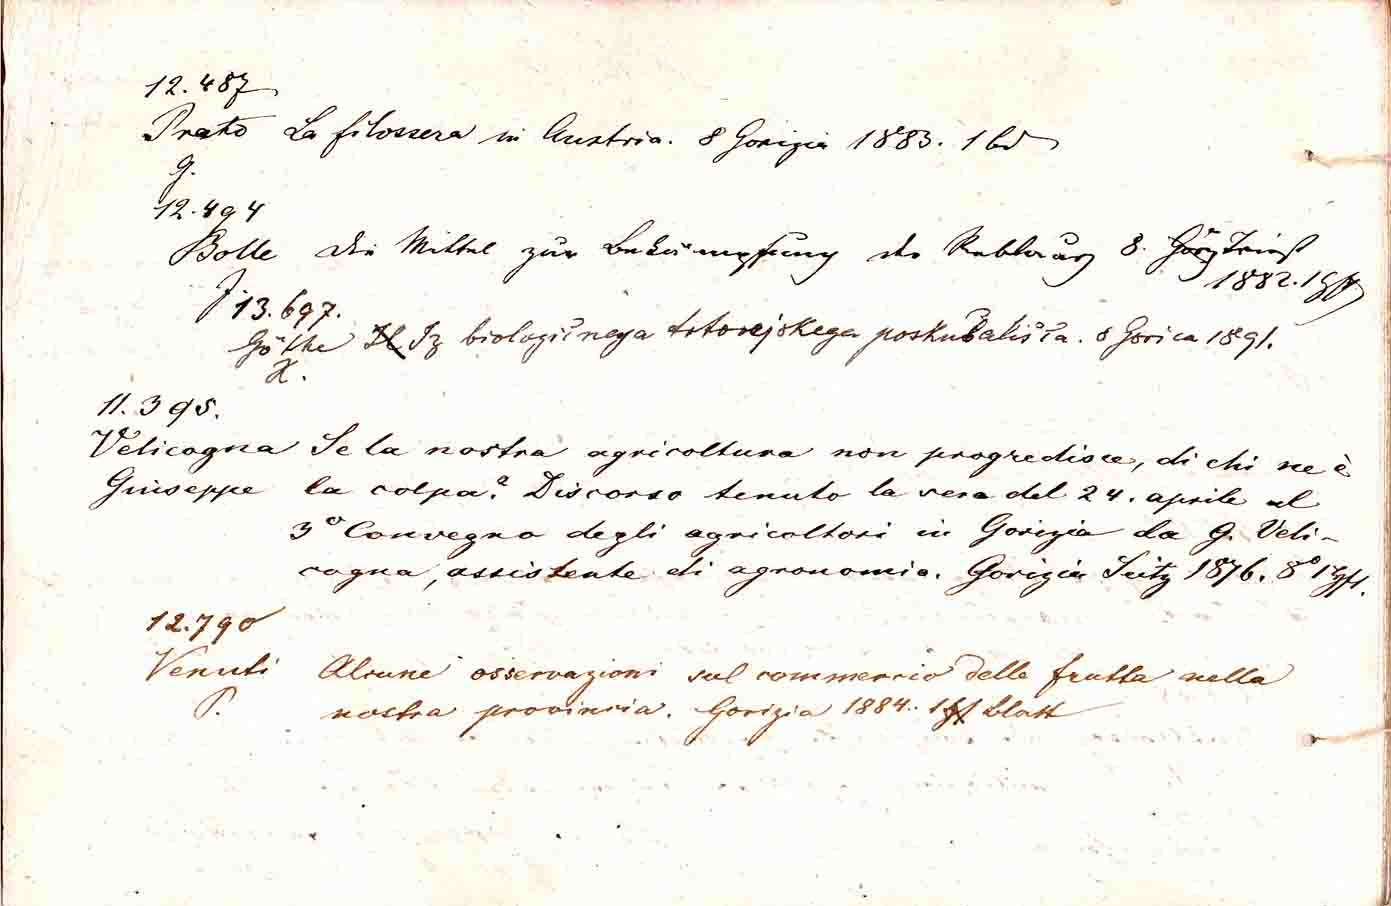 12.487
Prato La filossera in Austria. 8 Gorizia 1883. 1 bd
G.
12.494
Bolle Die Mittel zur Bekämpfung der Reblaus 8. Görz Triest
J. 1882. 1 Hft
13.697.
Göthe Iz biologičnega trtorejskega poskušališča. 8 Gorica 1891.
H.
11.395.
Velicogna Se la nostra agricoltura non progredisce, di chi ne è
Giuseppe la colpa? Discorso tenuto la sera del 24. aprile al
3° Convegno degli agricoltori in Gorizia da G. Veli-
cogna, assistente di agronomia. Gorizia Seitz 1876. 8° 1 Hft.
12.790
Venuti Alcune osservazioni sul commercio delle frutta nella
P. nostra provincia. Gorizia 1884. 1 Blatt